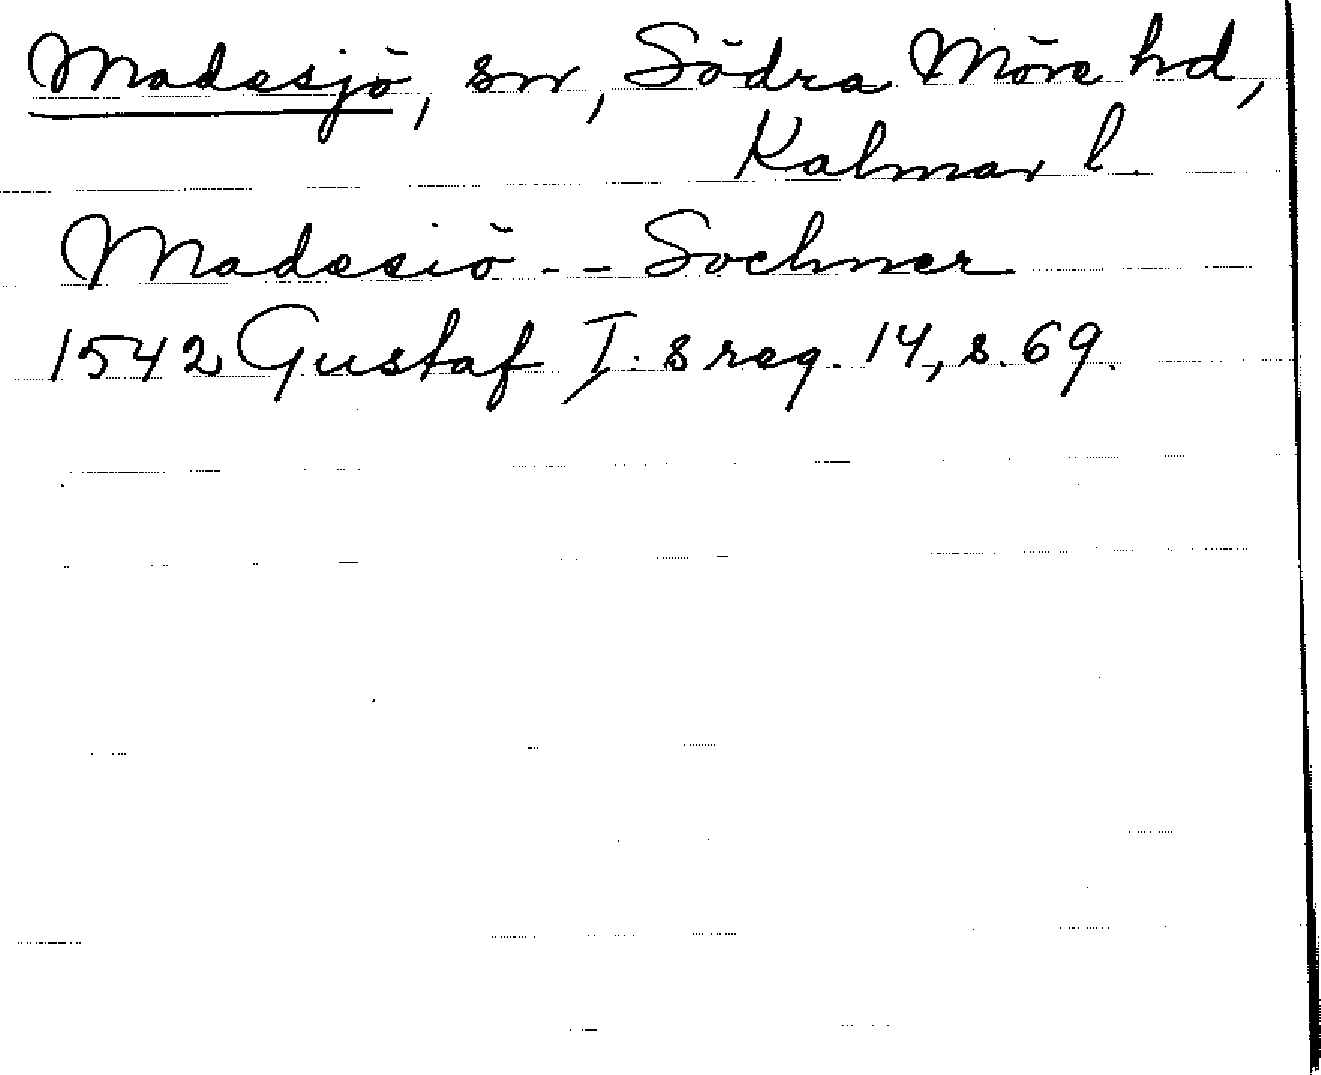 Madesjö, sn, Södra Möre hd,
Kalmar l.
Madesiö - - Sochner
1542 Gustaf I:s reg. 14, s. 69.